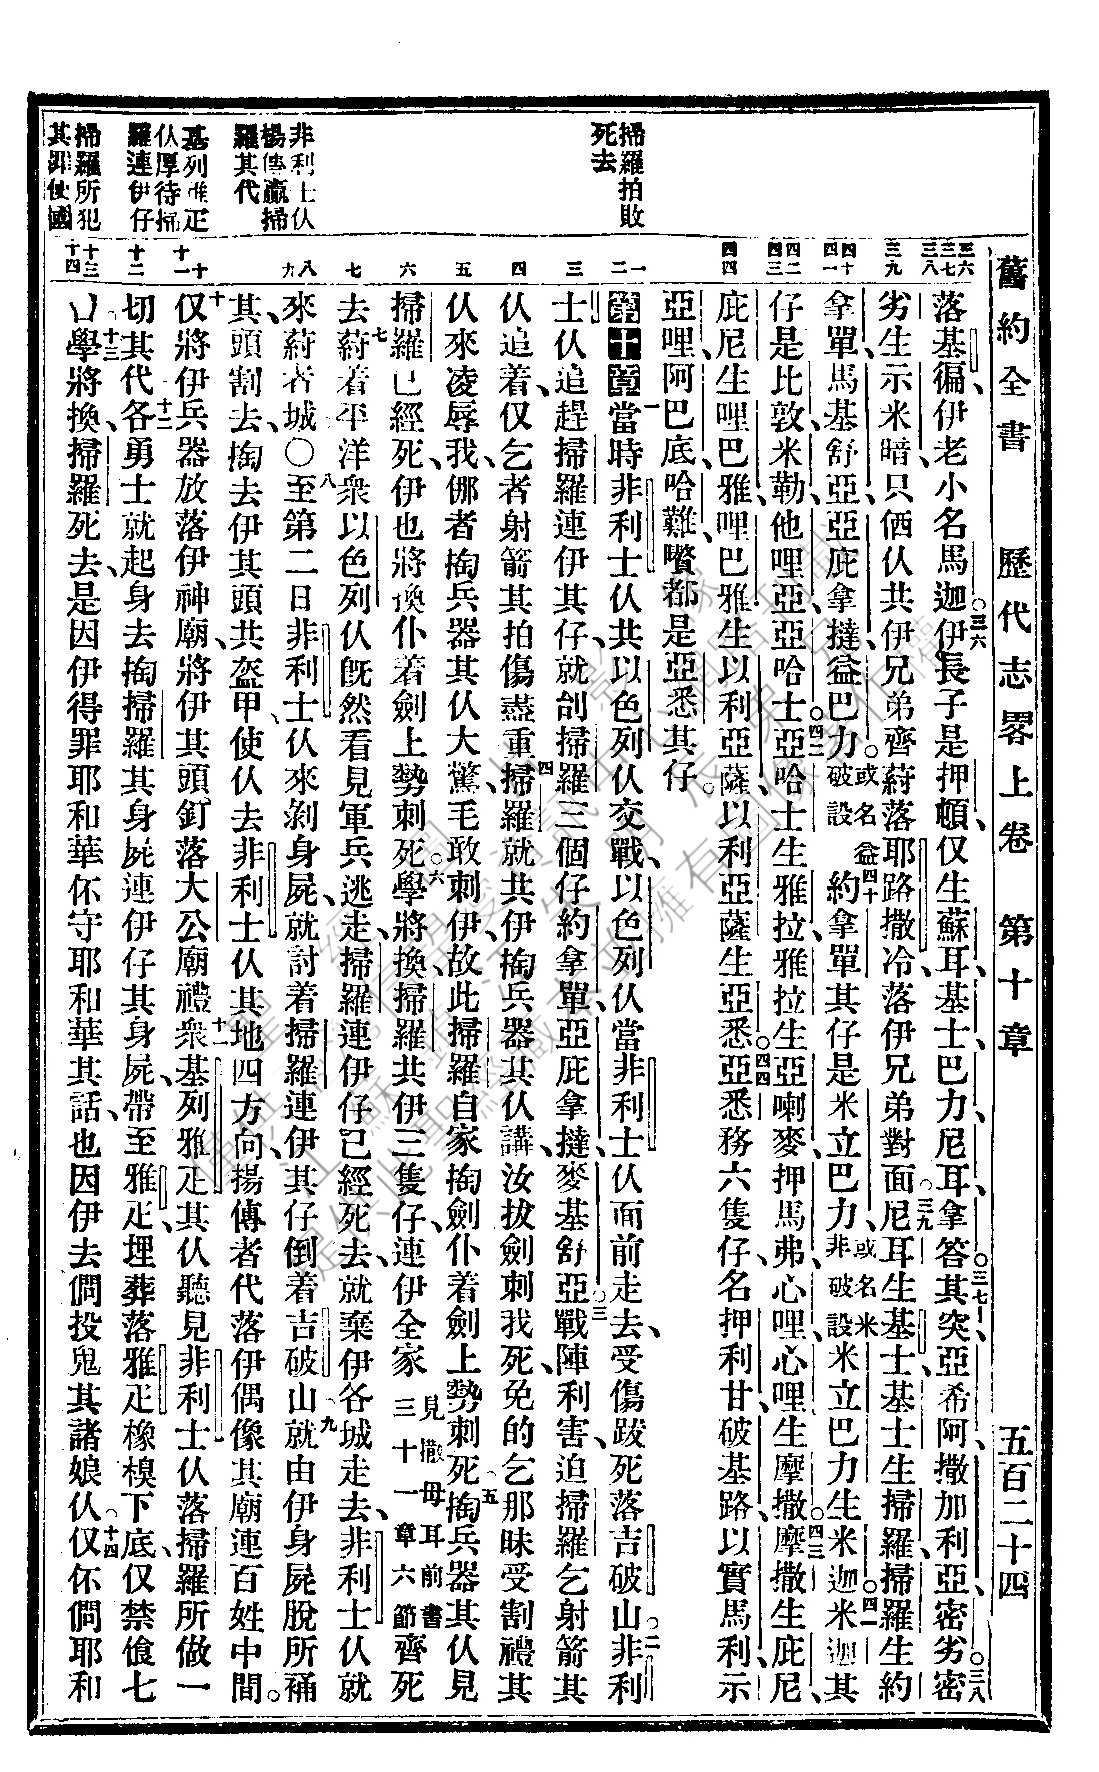 舊約全書　歷代志畧上卷　第十章　五百二十四
掃羅拍敗
死去
非利士仈
揚傳贏掃
羅其代
基列雅疋
仈厚待掃
羅連伊仔
掃羅所犯
其罪使國
三六 三七 三八 三九 四十 四一 四二 四三 四四 一 二 三 四 五 六 七 八 九 十 十一 十二 十三 十四
落基徧伊老小名馬迦○三六伊長子是押頓仅生蘇耳基士巴力尼耳拿答其突○三七亞希阿撒加利亞密劣○三八密
劣生示米暗只俖仈共伊兄弟齊蒔落耶路撒冷落伊兄弟對面○三九尼耳生基士基士生掃羅掃羅生約
拿單馬基舒亞亞庇拿撻益巴力或名益破設○四十約拿單其仔是米立巴力或名米非破設米立巴力生米迦○四一米迦其
仔是比敦米勒他哩亞亞哈士○四二亞哈士生雅拉雅拉生亞喇麥押馬弗心哩心哩生摩撒○四三摩撒生庇尼
庇尼生哩巴雅哩巴雅生以利亞薩以利亞薩生亞悉○四四亞悉務六隻仔名押利甘破基路以實馬利示
亞哩阿巴底哈難嚽都是亞悉其仔○
第十章一當時非利士仈共以色列仈交戰以色列仈當非利士仈面前走去受傷跋死落吉破山○二非利
士仈追趕掃羅連伊其仔就刣掃羅三個仔約拿單亞庇拿撻麥基舒亞○三戰陣利害迫掃羅乞射箭其
仈追着仅乞者射箭其拍傷盡重四掃羅就共伊掏兵器其仈講汝拔劍刺我死免的乞那昧受割禮其
仈來凌辱我㑚者掏兵器其仈大驚毛敢刺伊故此掃羅自家掏劍仆着劍上勢刺死五掏兵器其仈見
掃羅已經死伊也將換仆着劍上勢刺死○六學將換掃羅共伊三隻仔連伊全家見撒母耳前書三十一章六節齊死
去七蒔着平洋衆以色列仈旣然看見軍兵逃走掃羅連伊仔已經死去就棄伊各城走去非利士仈就
來蒔者城○八至第二日非利士仈來剝身屍就討着掃羅連伊其仔倒着吉破山九就由伊身屍脫所䘄
其頭割去掏去伊其頭共盔甲使仈去非利士仈其地四方向揚傳者代落伊偶像其廟連百姓中間○
十仅將伊兵器放落伊神廟將伊其頭釘落大公廟禮十一衆基列雅疋其仈聽見非利士仈落掃羅所做一
切其代十二各勇士就起身去掏掃羅其身屍連伊仔其身屍帶至雅疋埋葬落雅疋橡模下底仅禁飺七
日十三學將換掃羅死去是因伊得罪耶和華伓守耶和華其話也因伊去僩投鬼其諸娘仈○十四仅伓僩耶和